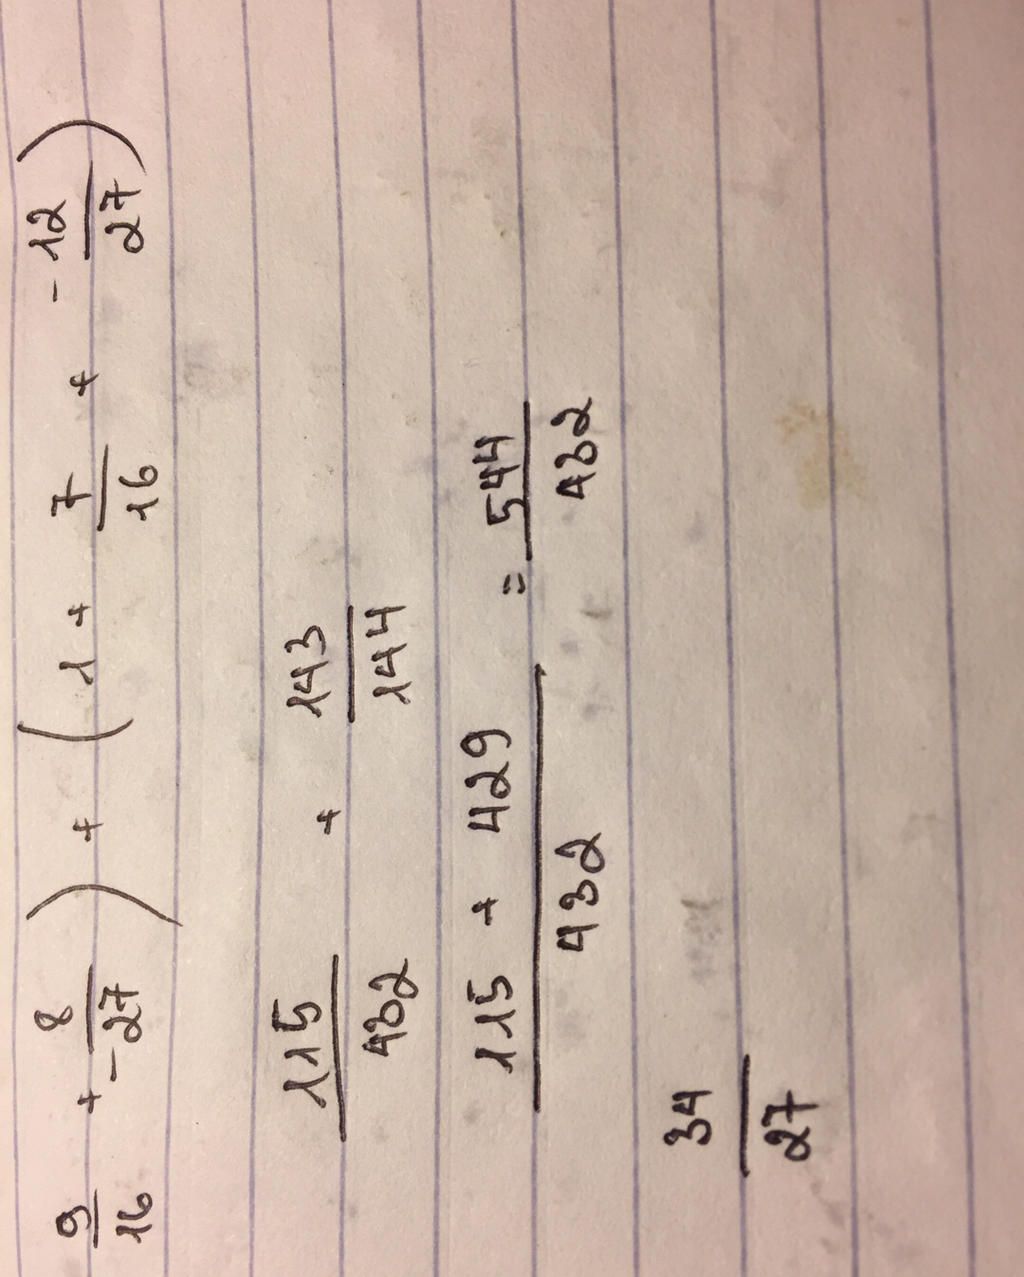 9/16 + 8/-27) + (1 + 7/16 + -12/27)
115/432 + 143/144
115 + 429/432 = 544/432
34/27